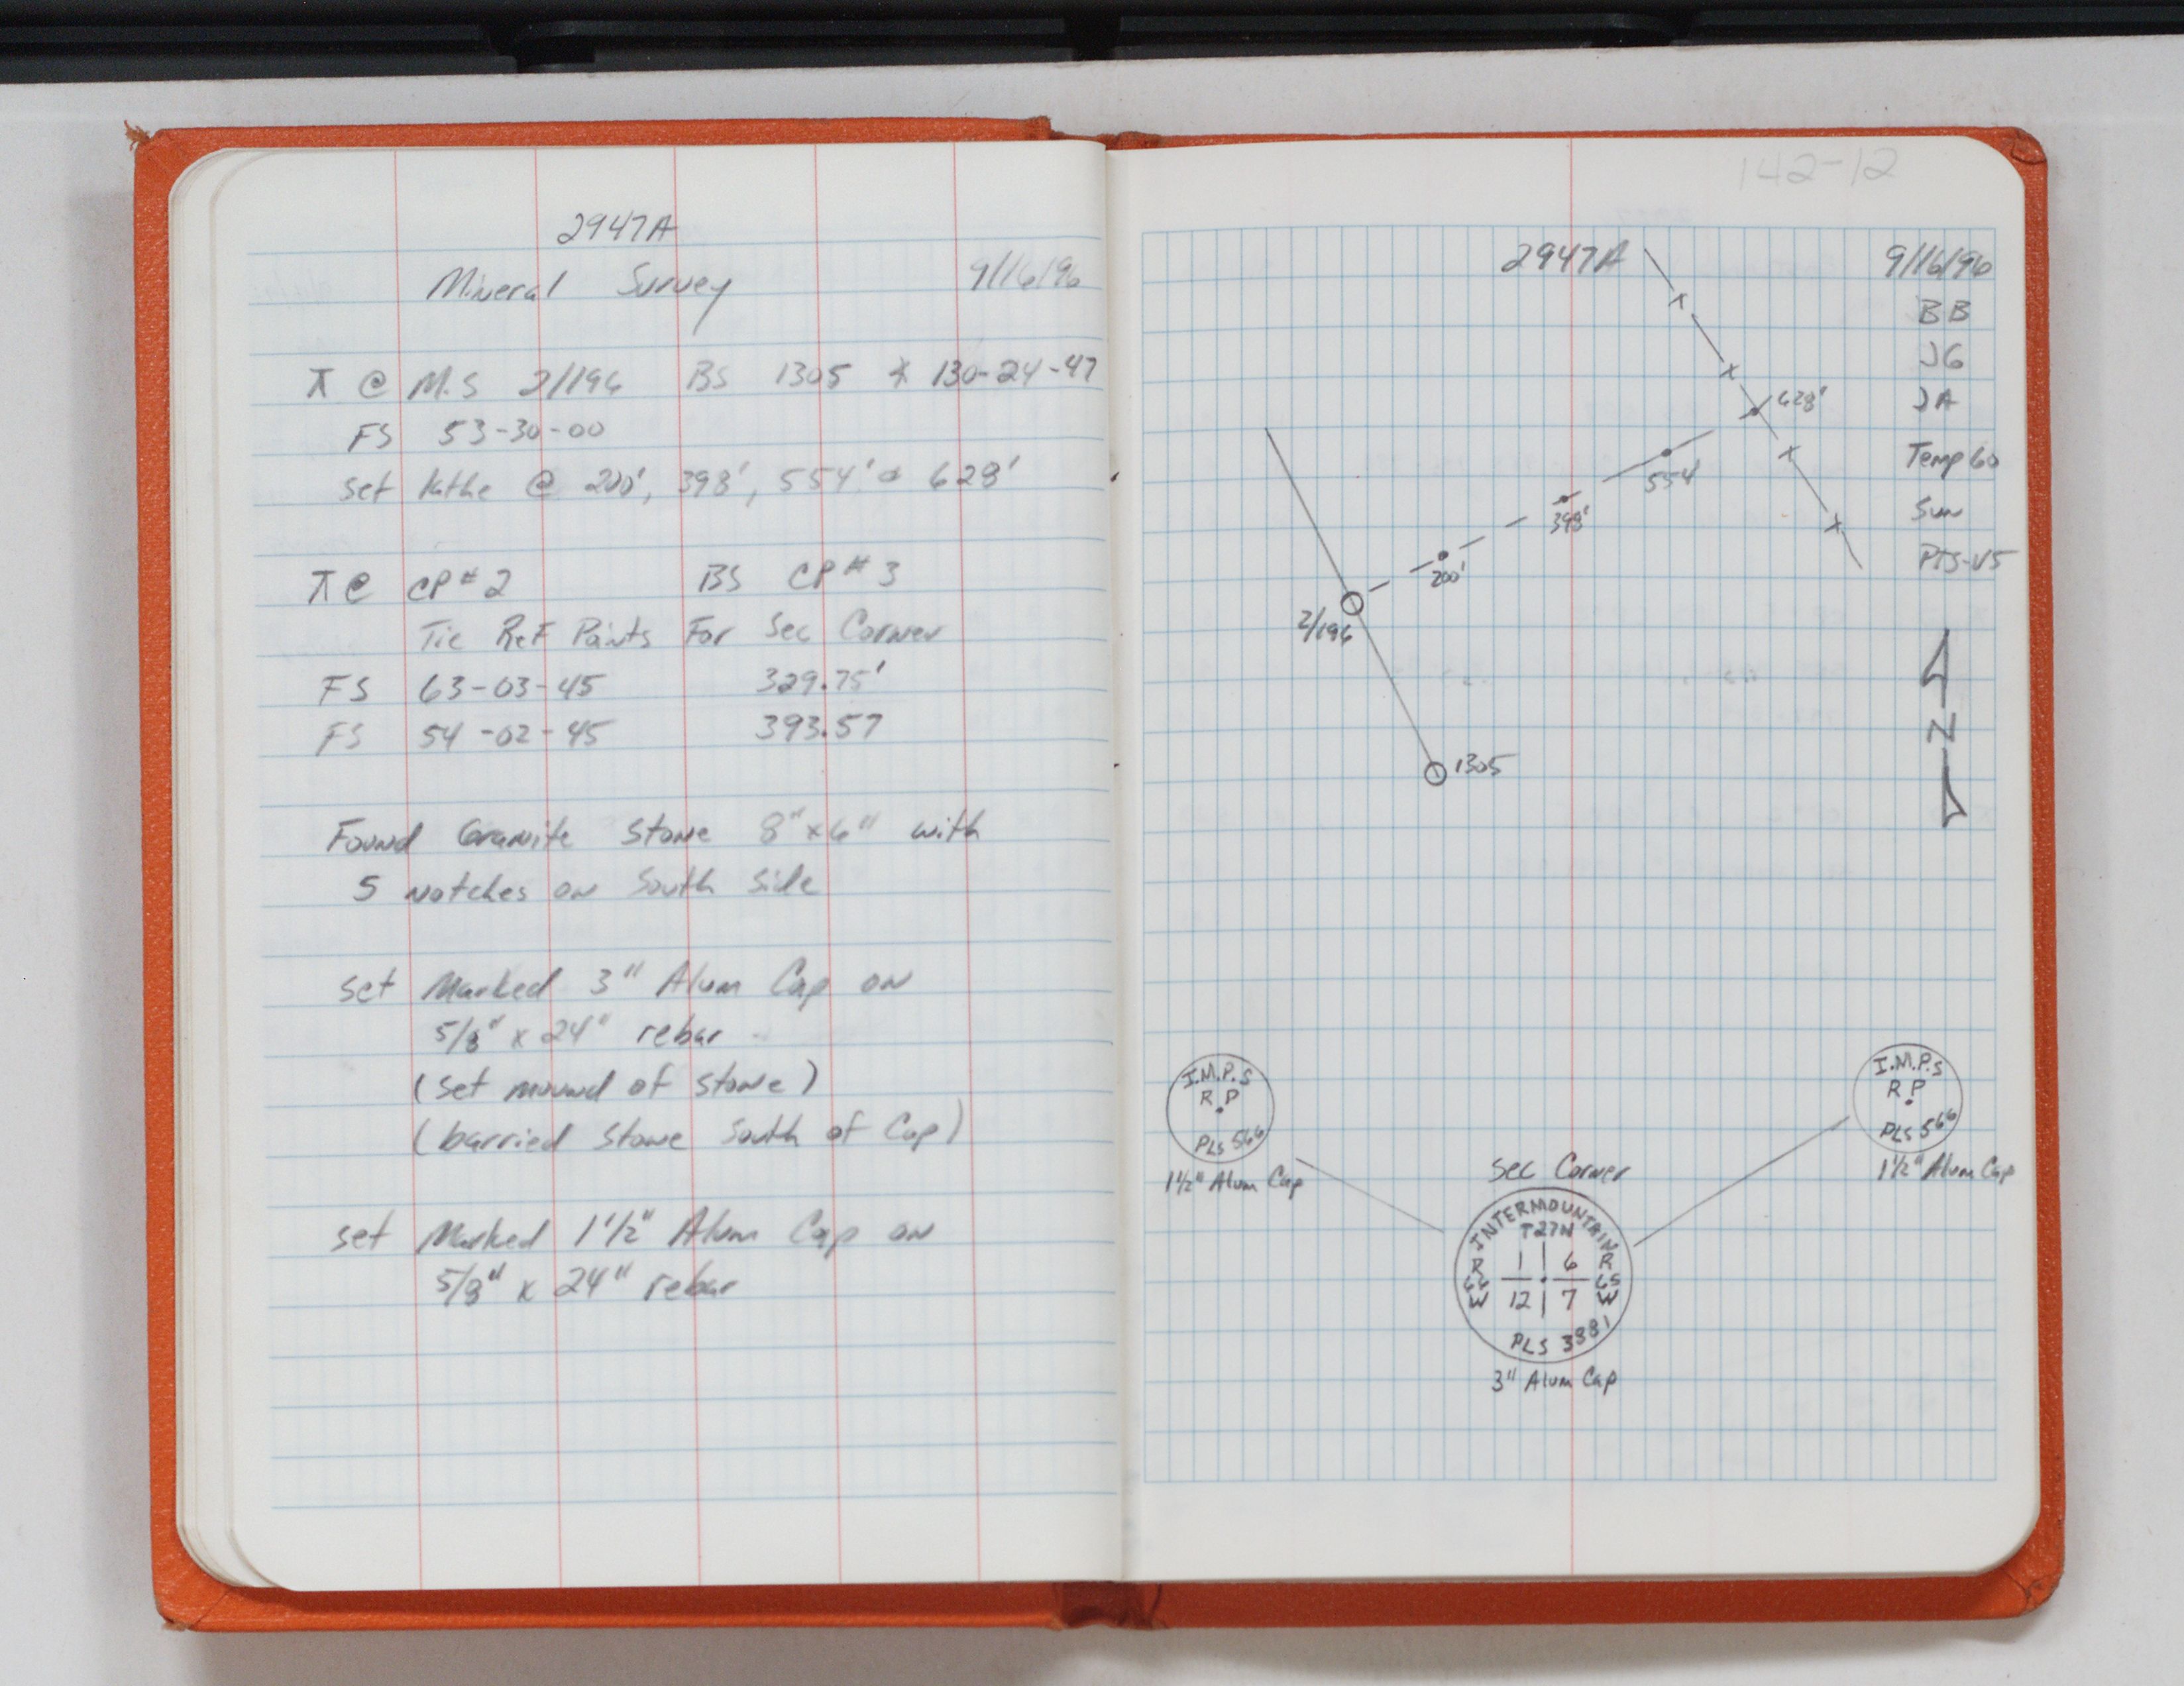 2947A
Mineral Survey 9/16/96
⊼ @ M.S 2/196 BS 1305 ∡ 130-24-47
FS 53-30-00
set lathe @ 200', 398', 554' & 628'
⊼ @ CP#2 BS CP#3
Tie Ref Points For Sec Corner
FS 63-03-45 329.75'
FS 54-02-45 393.57
Found Granite Stone 8"x6" with
5 notches on South Side
set Marked 3" Alum Cap on
5/8" x 24" rebar
(set mound of stone)
(barried stone south of Cap)
set Marked 1 1/2" Alum Cap on
5/8" x 24" rebar
142-12
2947A 9/16/96
BB
JG
JA
Temp 60
Sun
PTS-V5
628'
554'
398'
200'
2/196
N
1305
I.M.P.S
R P
PLS 566
1 1/2" Alum Cap
I.M.P.S
R P
PLS 566
1 1/2" Alum Cap
Sec Corner
INTERMOUNTAIN
T27N
R 66 W
1 6
12 7
R 65 W
PLS 3881
3" Alum Cap